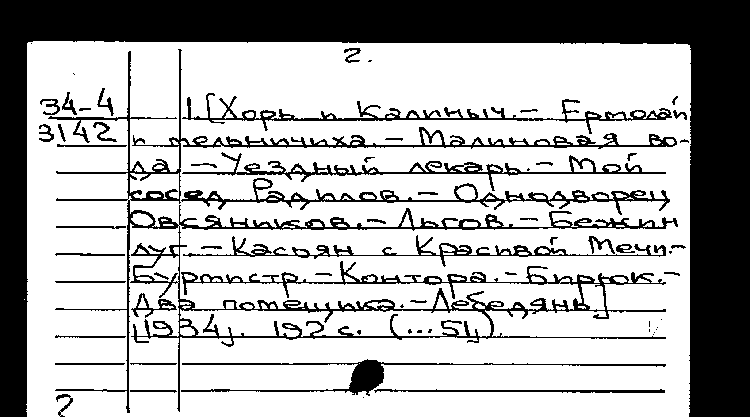 2.
34-4
3142
1. [Хорь и Калиныч. – Ермолай
и мельничиха. – Малиновая во-
да. – Уездный лекарь. – Мой
сосед Радилов. – Однодворец
Овсяников. – Льгов. – Бежин
луг. – Касьян с Красивой Мечи. –
Бурмистр. – Контора. – Бирюк. –
Два помещика. – Лебедянь]
[1934]. 192 с. (...51)
2